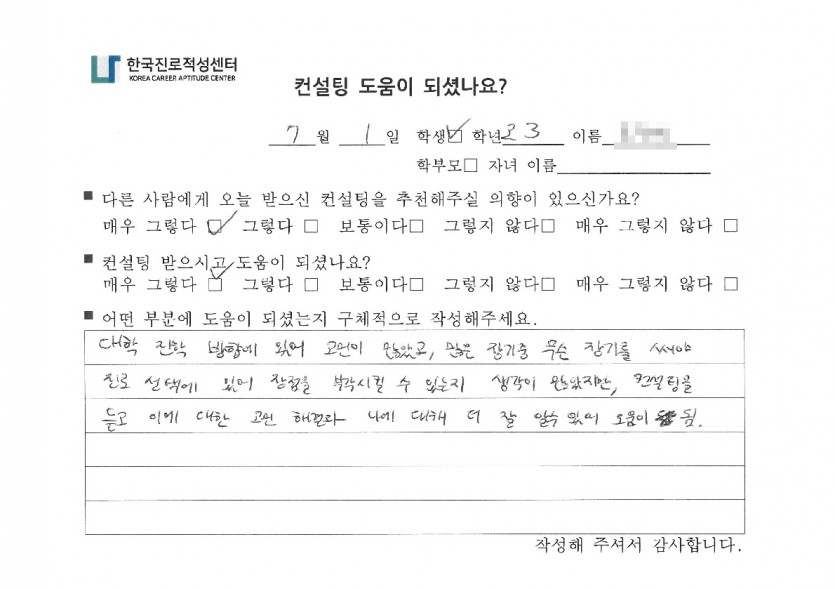 한국진로적성센터
KOREA CAREER APTITUDE CENTER
컨설팅 도움이 되셨나요?
7 월 1 일 학생☑ 학년 23 이름
학부모□ 자녀 이름
■ 다른 사람에게 오늘 받으신 컨설팅을 추천해주실 의향이 있으신가요?
매우 그렇다 ☑ 그렇다 □ 보통이다□ 그렇지 않다□ 매우 그렇지 않다 □
■ 컨설팅 받으시고 도움이 되셨나요?
매우 그렇다 ☑ 그렇다 □ 보통이다□ 그렇지 않다□ 매우 그렇지 않다 □
■ 어떤 부분에 도움이 되셨는지 구체적으로 작성해주세요.
대학 진학 방향에 있어 고민이 많았고, 많은 잡기중 무슨 잡기를 써야
진로 선택에 있어 장점을 부각시킬 수 있는지 생각이 많았지만, 컨설팅을
듣고 이에 대한 고민 해결과 나에 대해 더 잘 알수 있어 도움이 됨.
작성해 주셔서 감사합니다.